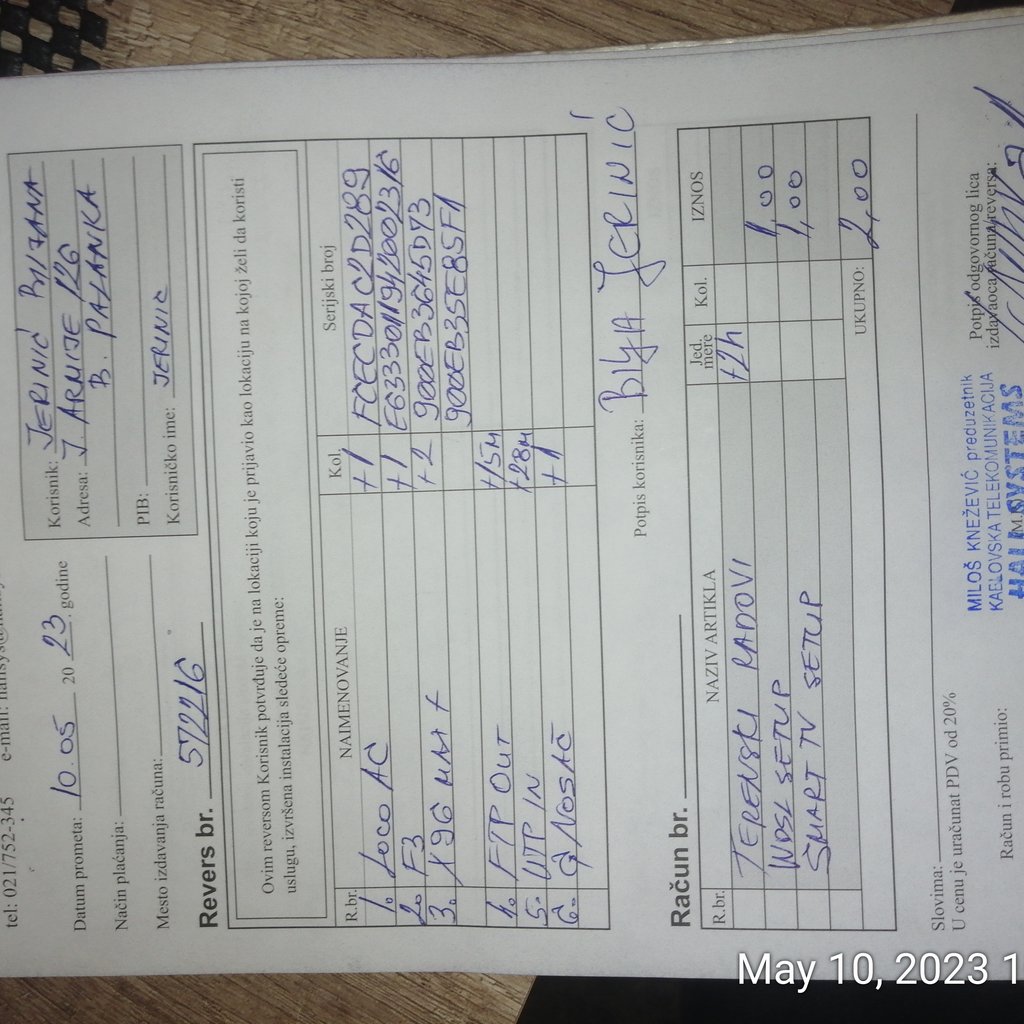 tel: 021/752-345
Datum prometa: 10.05 2023. godine
Način plaćanja:
Mesto izdavanja računa:
Korisnik: JERINIĆ
Adresa: J ARNIJE 126
B. PALANKA
PIB:
Korisničko ime: JERINIC
Revers br. 572216
Ovim reversom Korisnik potvrđuje da je na lokaciji koju je prijavio kao lokaciju na kojoj želi da koristi
uslugu, izvršena instalacija sledeće opreme:
R.br. NAIMENOVANJE Kol. Serijski broj
1. LOCO AC +1 FCECDAC2D289
2. F3 +1
3. +2 900EB3645D73
900EB35E85F1
4. FTP OUT +15M
5. UTP IN +28M
6. NOSAČ +1
Potpis korisnika: JERINIĆ
Račun br.
R.br. NAZIV ARTIKLA Jed. mere Kol. IZNOS
TERENSKI RADOVI +2h 1,00
SETUP 1,00
SMART TV SETUP
UKUPNO: 2,00
Slovima:
U cenu je uračunat PDV od 20%
Račun i robu primio:
Potpis odgovornog lica
izdavaoca računa/reversa:
MILOŠ KNEŽEVIĆ preduzetnik
KABLOVSKA TELEKOMUNIKACIJA
SYSTEMS
May 10, 2023 1